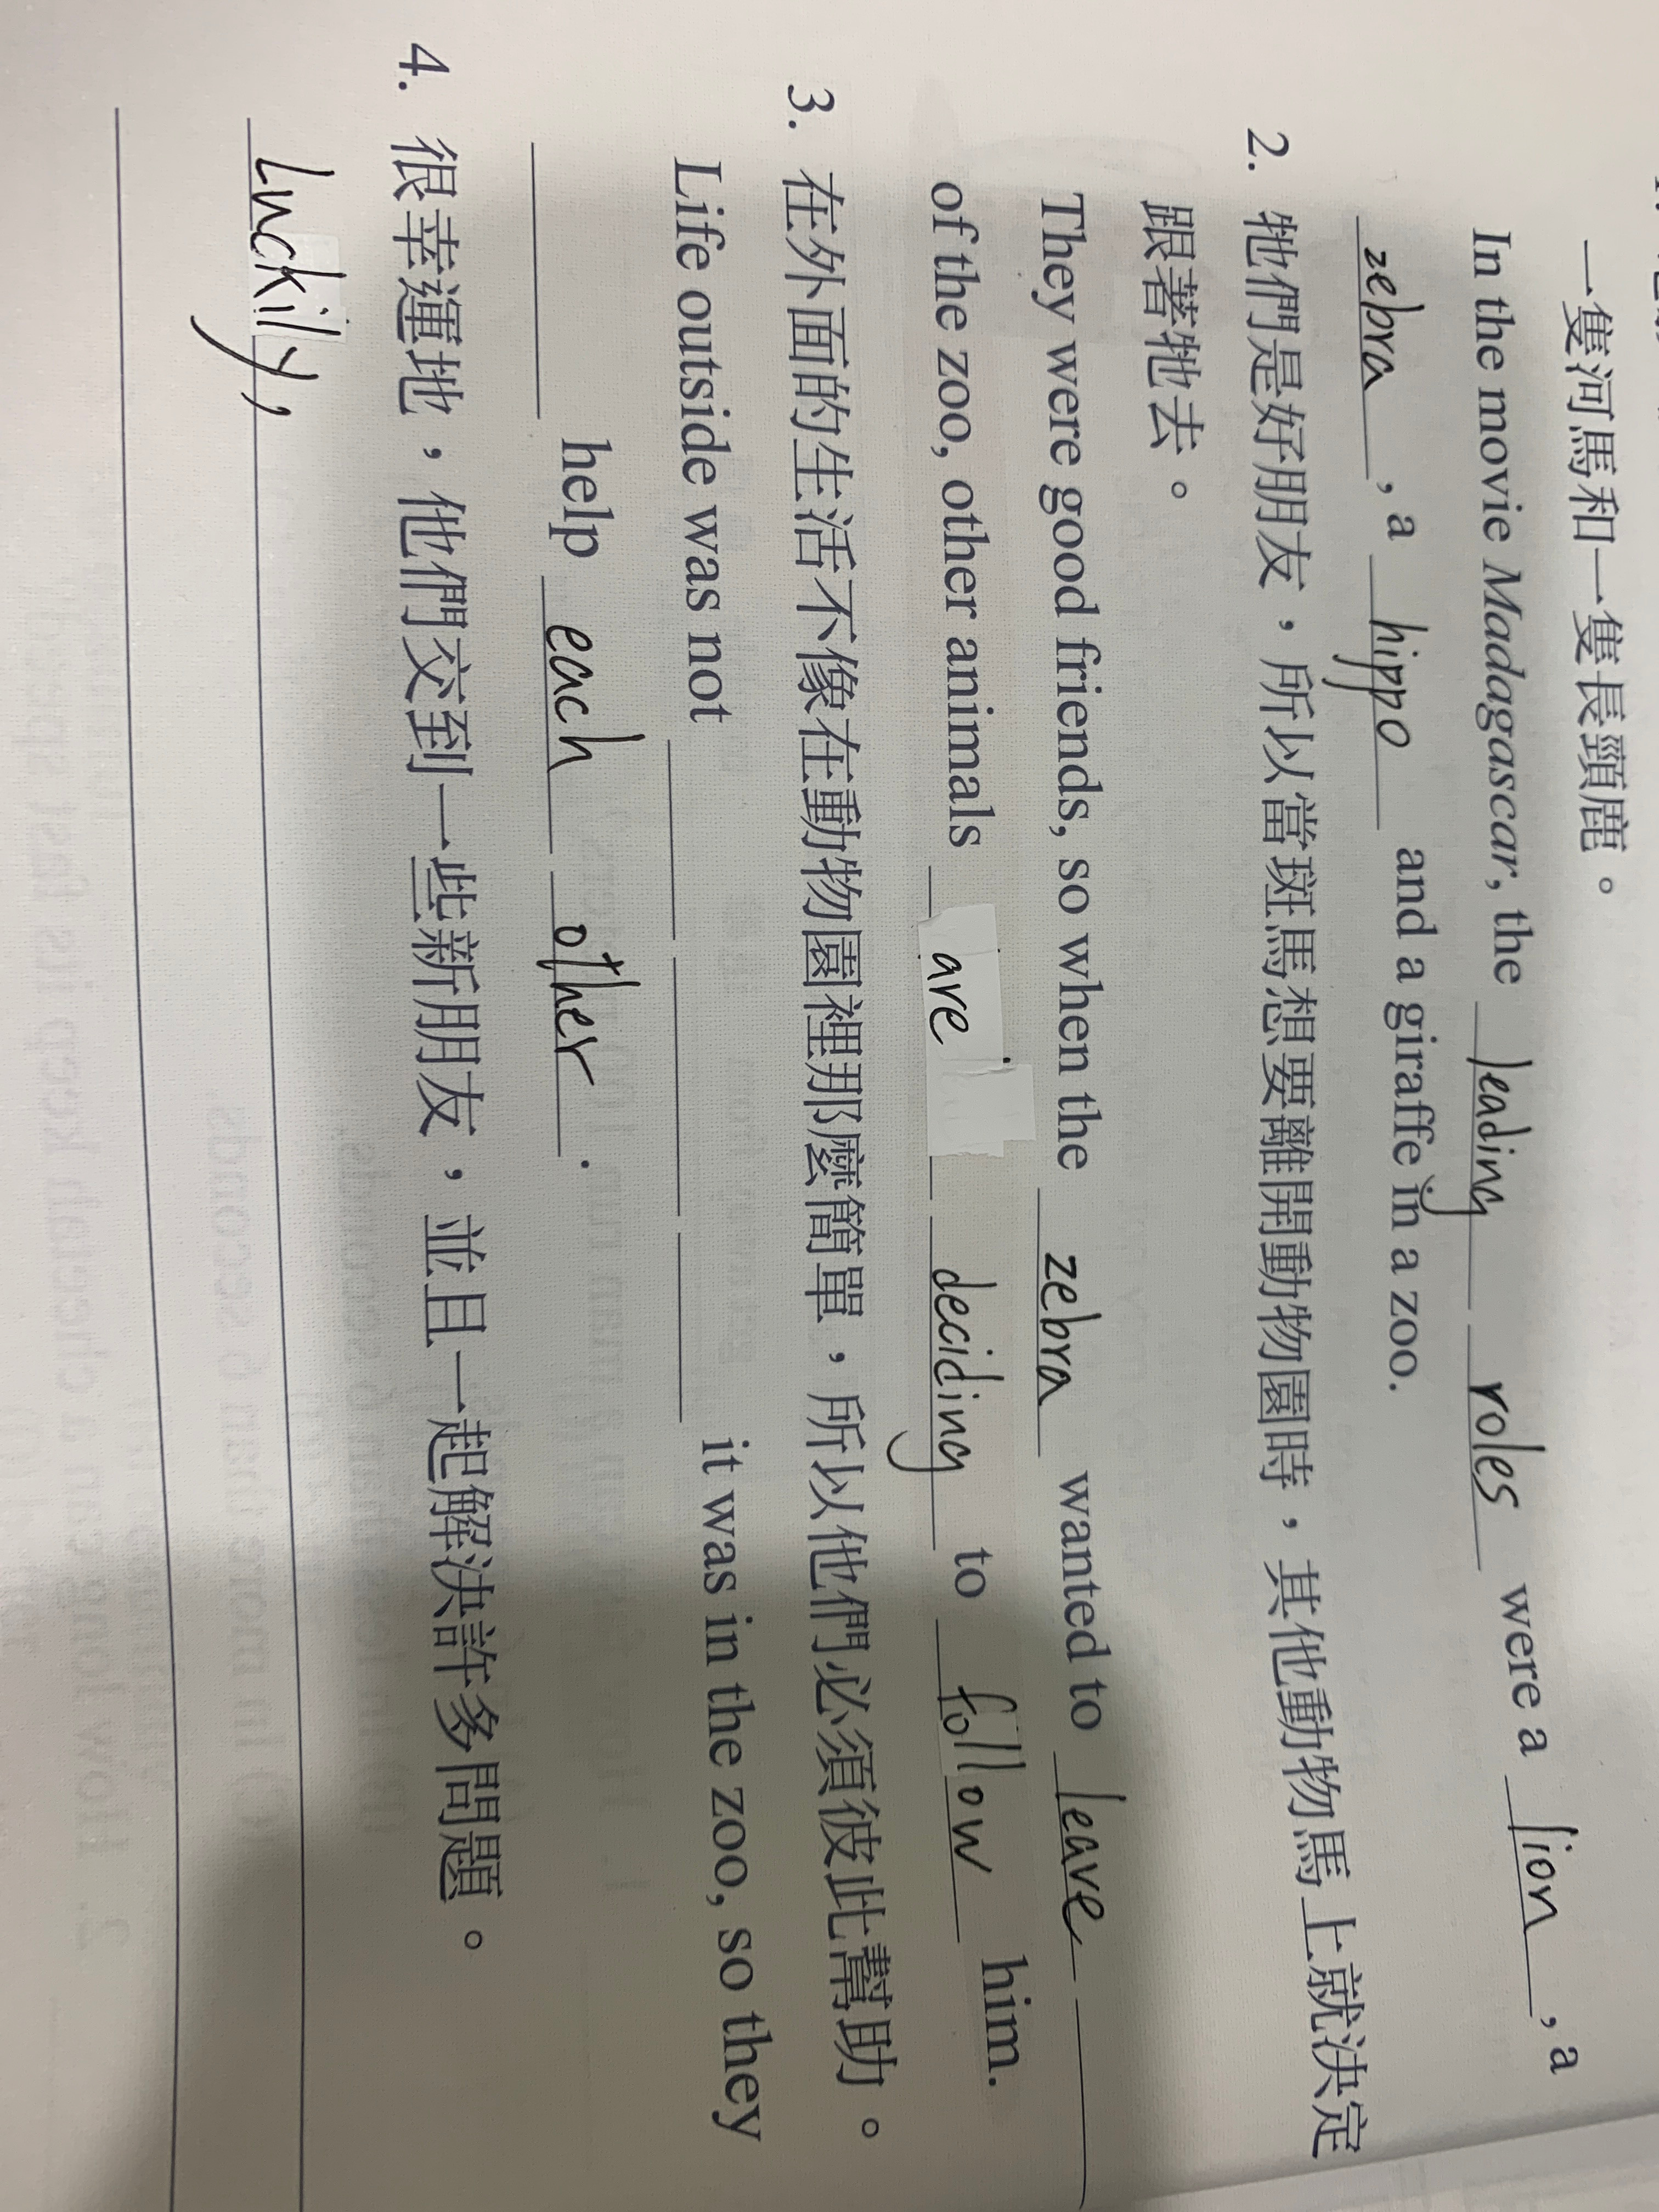 一隻河馬和一隻長頸鹿。
In the movie Madagascar, the leading roles were a lion, a
zebra, a hippo and a giraffe in a zoo.
2. 牠們是好朋友，所以當斑馬想要離開動物園時，其他動物馬上就決定
跟著牠去。
They were good friends, so when the zebra wanted to leave
of the zoo, other animals are deciding to follow him.
3. 在外面的生活不像在動物園裡那麼簡單，所以他們必須彼此幫助。
Life outside was not it was in the zoo, so they
help each other.
4. 很幸運地，他們交到一些新朋友，並且一起解決許多問題。
Luckily,